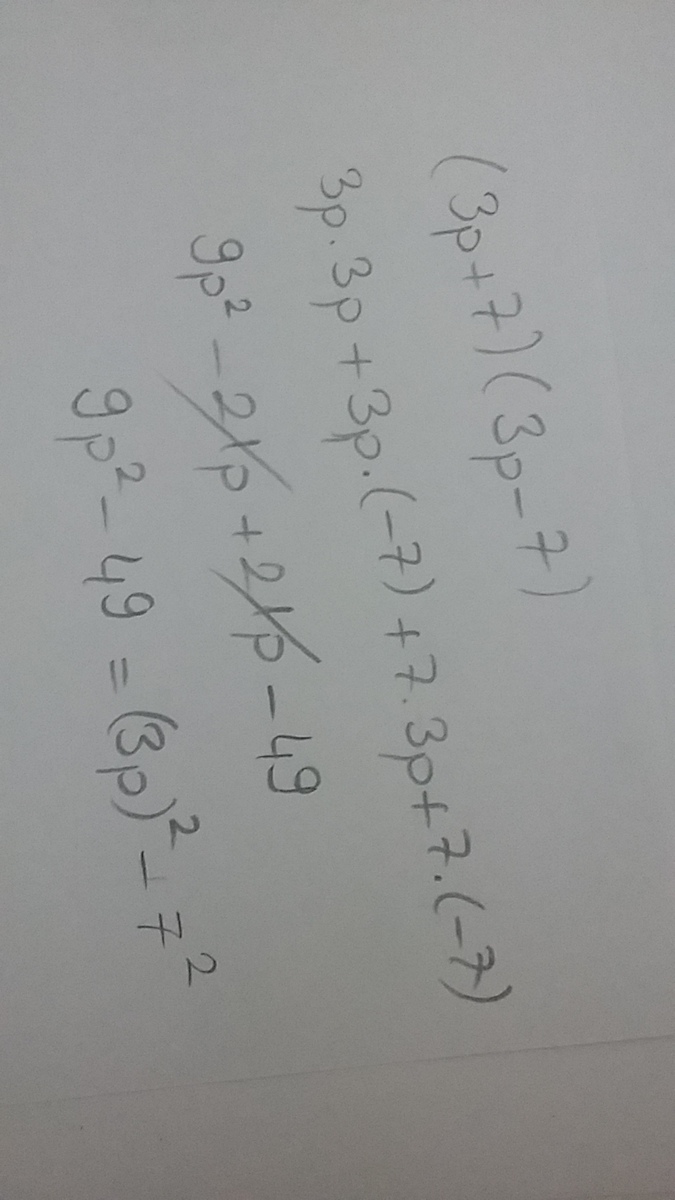 (3p+7)(3p-7)
3p.3p+3p.(-7)+7.3p+7.(-7)
9p²-21p+21p-49
9p²-49=(3p)²-7²